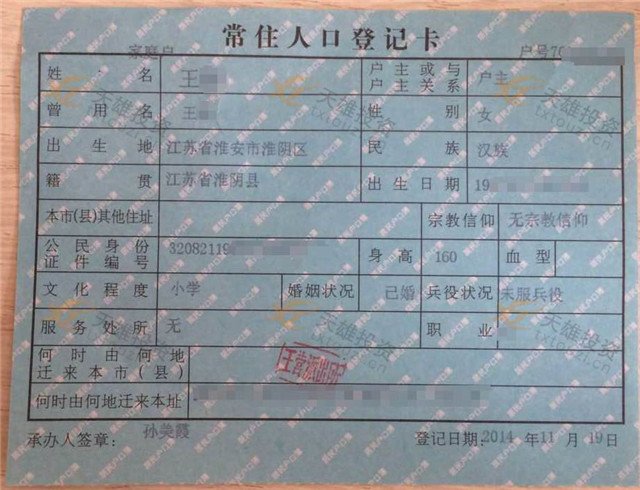 常住人口登记卡
家庭户 户号70
姓名 王 户主或与户主关系 户主
曾用名 王 性别 女
出生地 江苏省淮安市淮阴区 民族 汉族
籍贯 江苏省淮阴县 出生日期 19
本市(县)其他住址 宗教信仰 无宗教信仰
公民身份证件编号 32082119 身高 160 血型
文化程度 小学 婚姻状况 已婚 兵役状况 未服兵役
服务处所 无 职业
何时由何地迁来本市(县)
王营派出所
何时由何地迁来本址
承办人签章: 孙美霞 登记日期:2014年11月19日
天雄投资
txtouzi.com